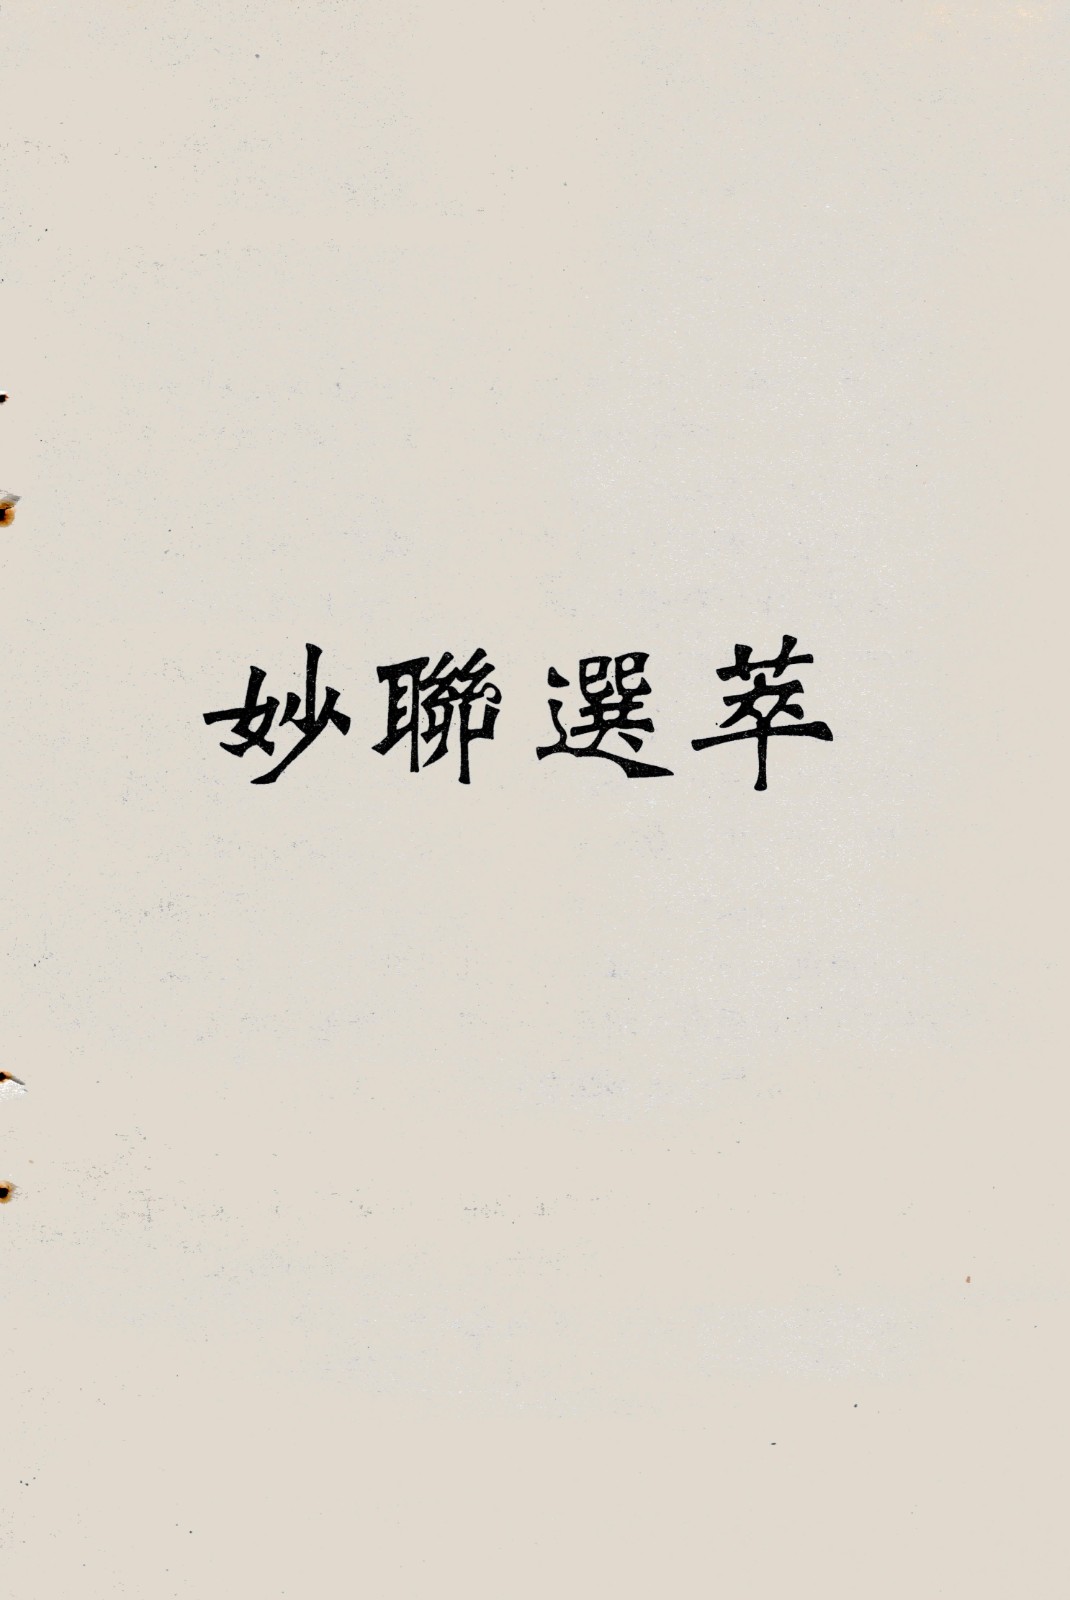 妙聯選萃